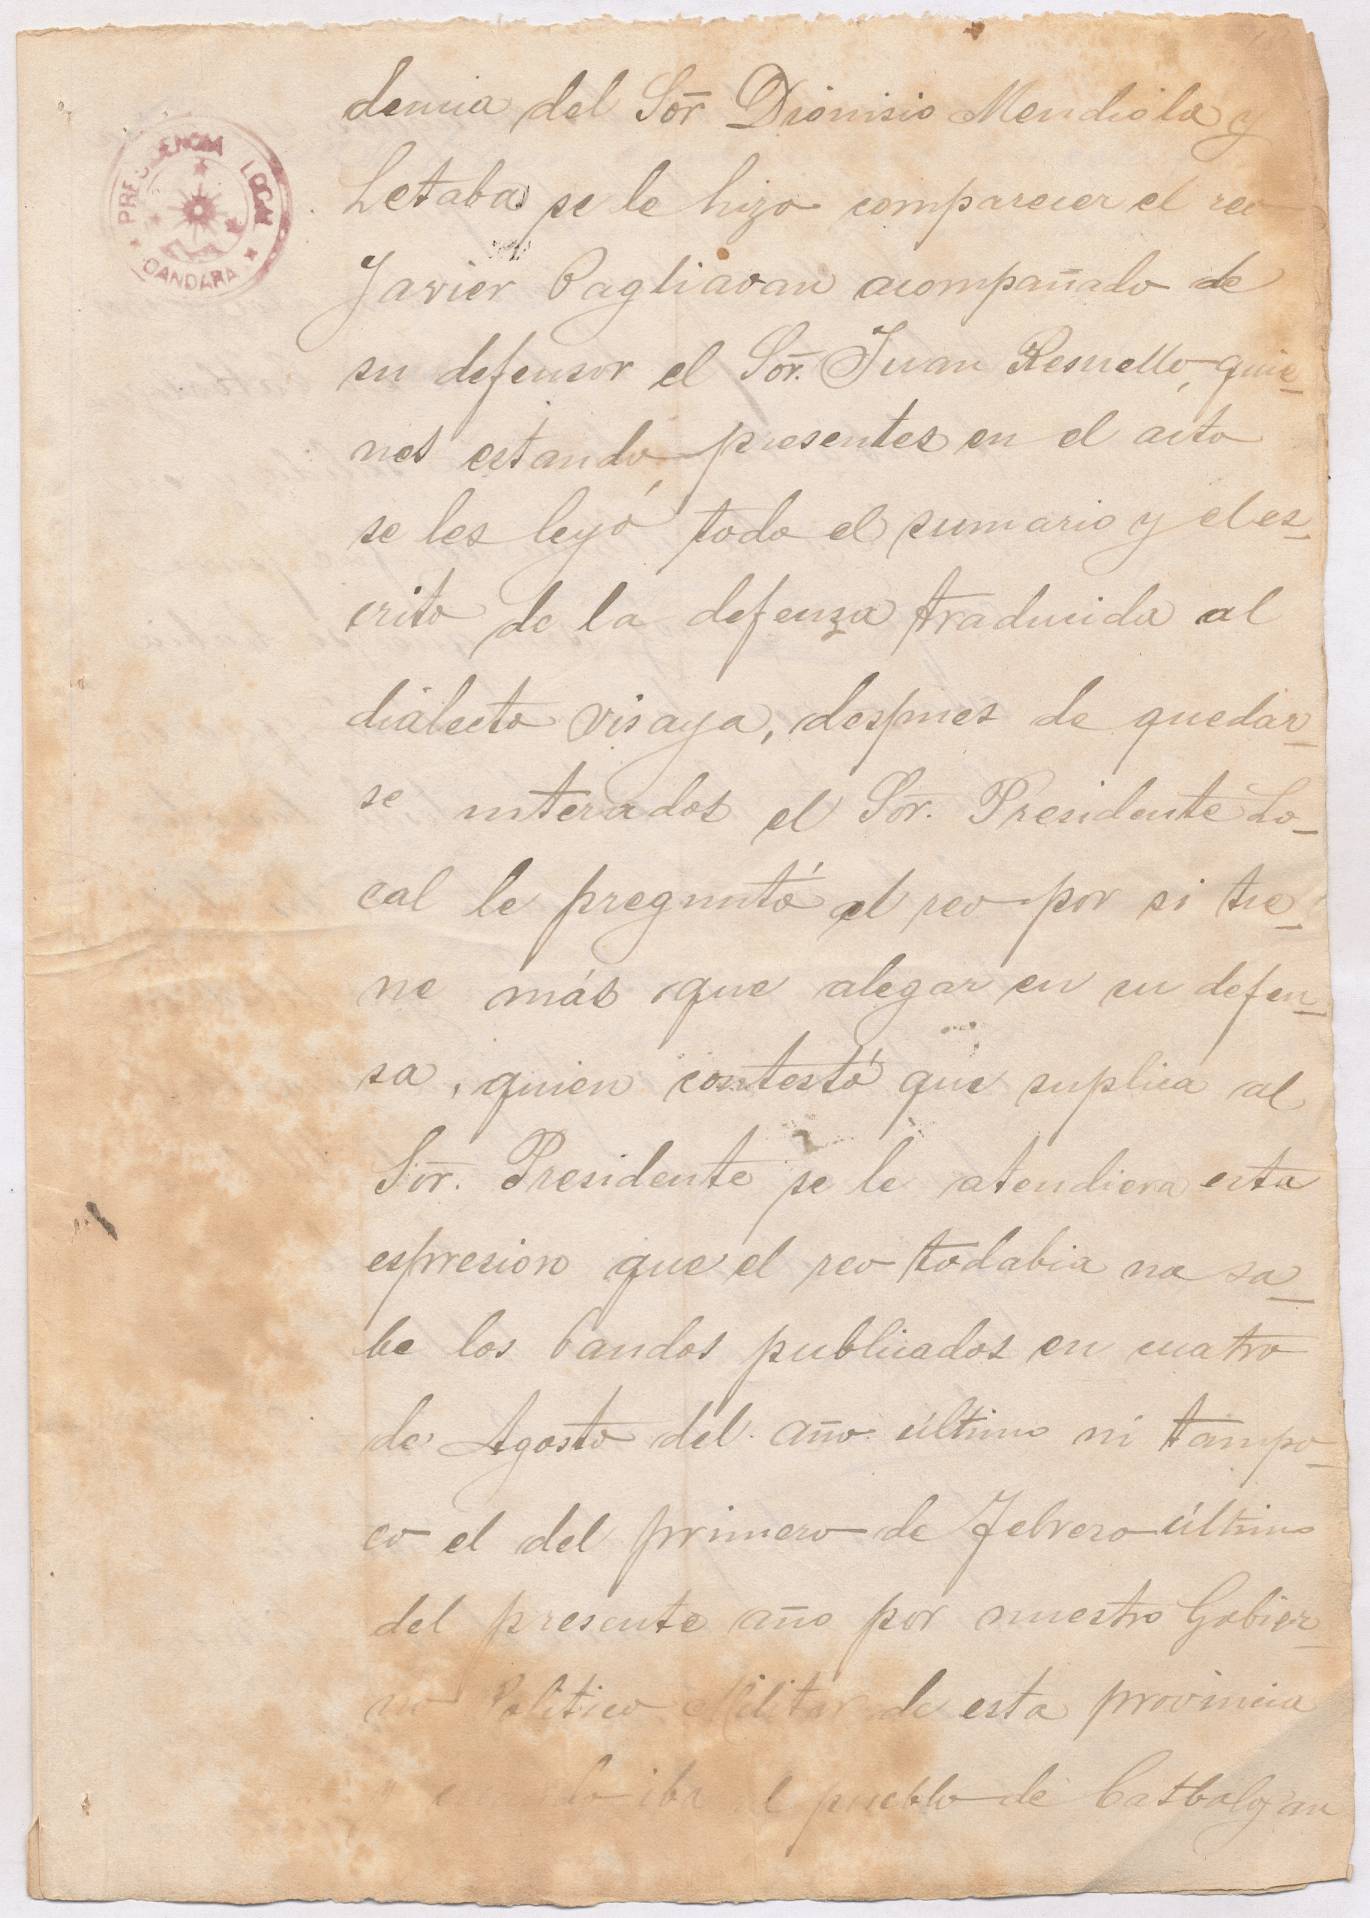 PRESIDENCIA LOCAL
DANDARA
dencia del Sor̃ Dionisio Mendiola y
Letaba se le hizo comparecer el reo
Javier Pagliawan acompañado de
su defensor el Sor̃. Juan Resuello, quie-
nes estando, presentes en el acto
se les leyó todo el sumario y el es-
crito de la defenza traducida al
dialecto visaya, despues de quedar-
se interados el Sor̃. Presidente Lo-
cal le preguntó al reo por si tie-
ne más que alegar en su defen-
sa, quien contestó que suplica al
Sor̃. Presidente se le atendiera esta
espresion que el reo todabia no sa-
be los bandos publicados en cuatro
de Agosto del año último ni tampo-
co el del primero de Febrero último
del presente año por nuestro Gobier-
no Politico Militar de esta provincia
iba el pueblo de Catbalogan